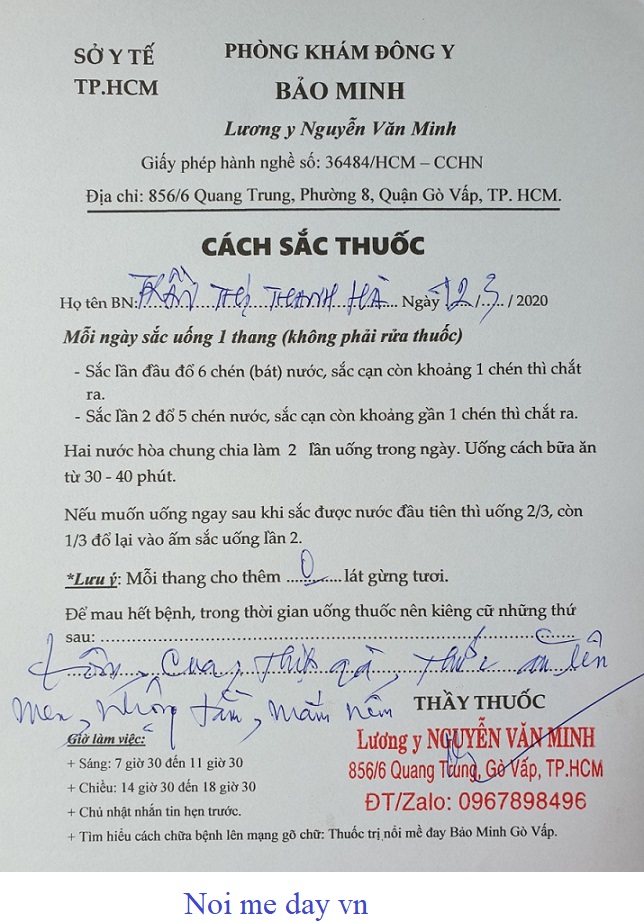 SỞ Y TẾ
TP.HCM
PHÒNG KHÁM ĐÔNG Y
BẢO MINH
Lương y Nguyễn Văn Minh
Giấy phép hành nghề số: 36484/HCM – CCHN
Địa chỉ: 856/6 Quang Trung, Phường 8, Quận Gò Vấp, TP. HCM.
CÁCH SẮC THUỐC
Họ tên BN: TRẦN THỊ THANH HÀ Ngày 12/3/ 2020
Mỗi ngày sắc uống 1 thang (không phải rửa thuốc)
- Sắc lần đầu đổ 6 chén (bát) nước, sắc cạn còn khoảng 1 chén thì chắt
ra.
- Sắc lần 2 đổ 5 chén nước, sắc cạn còn khoảng gần 1 chén thì chắt ra.
Hai nước hòa chung chia làm 2 lần uống trong ngày. Uống cách bữa ăn
từ 30 - 40 phút.
Nếu muốn uống ngay sau khi sắc được nước đầu tiên thì uống 2/3, còn
1/3 đổ lại vào ấm sắc uống lần 2.
*Lưu ý: Mỗi thang cho thêm ...0... lát gừng tươi.
Để mau hết bệnh, trong thời gian uống thuốc nên kiêng cữ những thứ
sau: ..........
tôm, cua, thịt gà, thức ăn lên
men, nhộng tằm, mắm nêm
THẦY THUỐC
Lương y NGUYỄN VĂN MINH
856/6 Quang Trung, Gò Vấp, TP.HCM
ĐT/Zalo: 0967898496
Giờ làm việc:
+ Sáng: 7 giờ 30 đến 11 giờ 30
+ Chiều: 14 giờ 30 đến 18 giờ 30
+ Chủ nhật nhắn tin hẹn trước.
+ Tìm hiểu cách chữa bệnh lên mạng gõ chữ: Thuốc trị nổi mề đay Bảo Minh Gò Vấp.
Noi me day vn